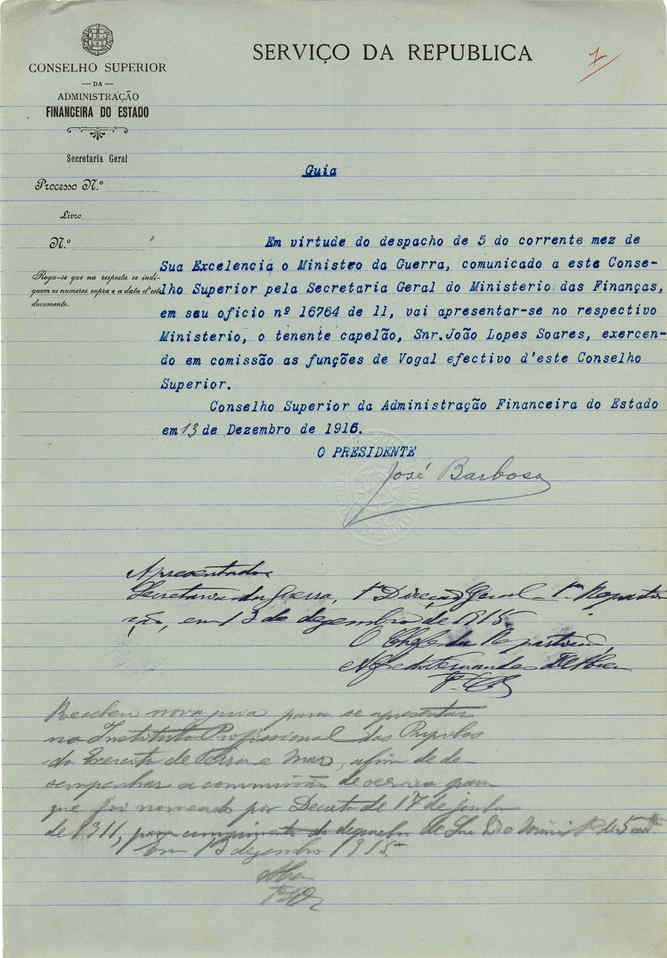 SERVIÇO DA REPUBLICA
1
CONSELHO SUPERIOR
— DA —
ADMINISTRAÇÃO
FINANCEIRA DO ESTADO
Secretaria Geral
Processo N.º
Livro
N.º
Roga-se que na resposta se indi-
quem os numeros supra e a data d'este
documento.
Guia
Em virtude do despacho de 5 do corrente mez de
Sua Excelencia o Ministro da Guerra, comunicado a este Conse-
lho Superior pela Secretaria Geral do Ministerio das Finanças,
em seu oficio nº 16764 de 11, vai apresentar-se no respectivo
Ministerio, o tenente capelão, Snr. João Lopes Soares, exercen-
do em comissão as funções de Vogal efectivo d'este Conselho
Superior.
Conselho Superior da Administração Financeira do Estado
em 13 de Dezembro de 1915.
O PRESIDENTE
José Barbosa
Apresentado
Secretaria da Guerra, 1ª Direcção Geral 1ª Reparti-
ção, em 13 de dezembro de 1915
O Chefe da Repartição
Recebeu nova guia para se apresentar
no Instituto Profissional dos Pupilos
do Exercito de Terra e Mar, afim de de-
sempenhar a commissão de serviço para
que foi nomeado por Decreto de 17 de junho
de 1911, para cumprimento do despacho de Sua Exª o Ministro de 5
Em 13 dezembro 1915